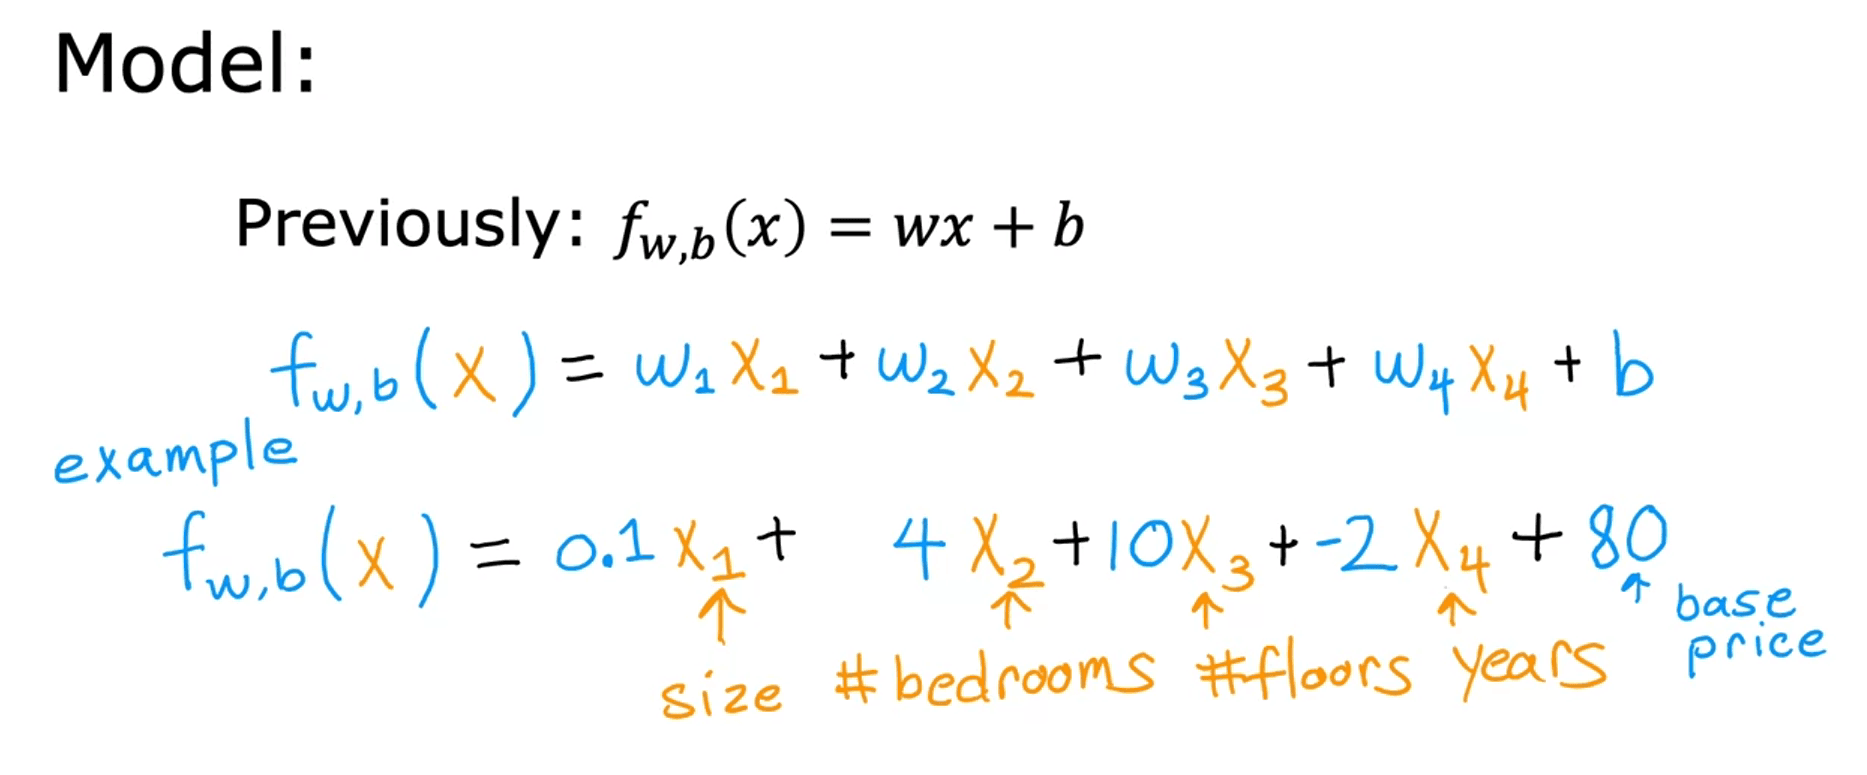 Model:
Previously: f_w,b(x) = wx + b
f_w,b(x) = w₁x₁ + w₂x₂ + w₃x₃ + w₄x₄ + b
example
f_w,b(x) = 0.1x₁ + 4x₂ + 10x₃ + -2x₄ + 80
↑ ↑ ↑ ↑ ↑ base price
size #bedrooms #floors years